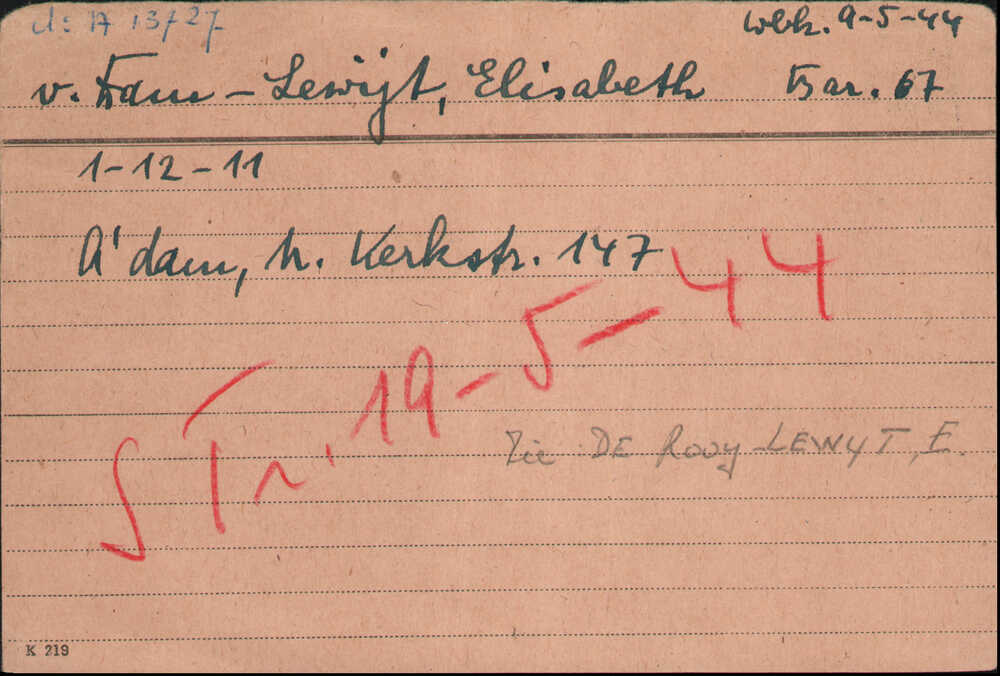 A 13727
wbk. 9-5-44
v. Dam - Lewijt, Elisabeth Bar. 67
1-12-11
A'dam, N. Kerkstr. 147
S Tr. 19-5-44
Zie DE Rooy-LEWYT, E.
K 219